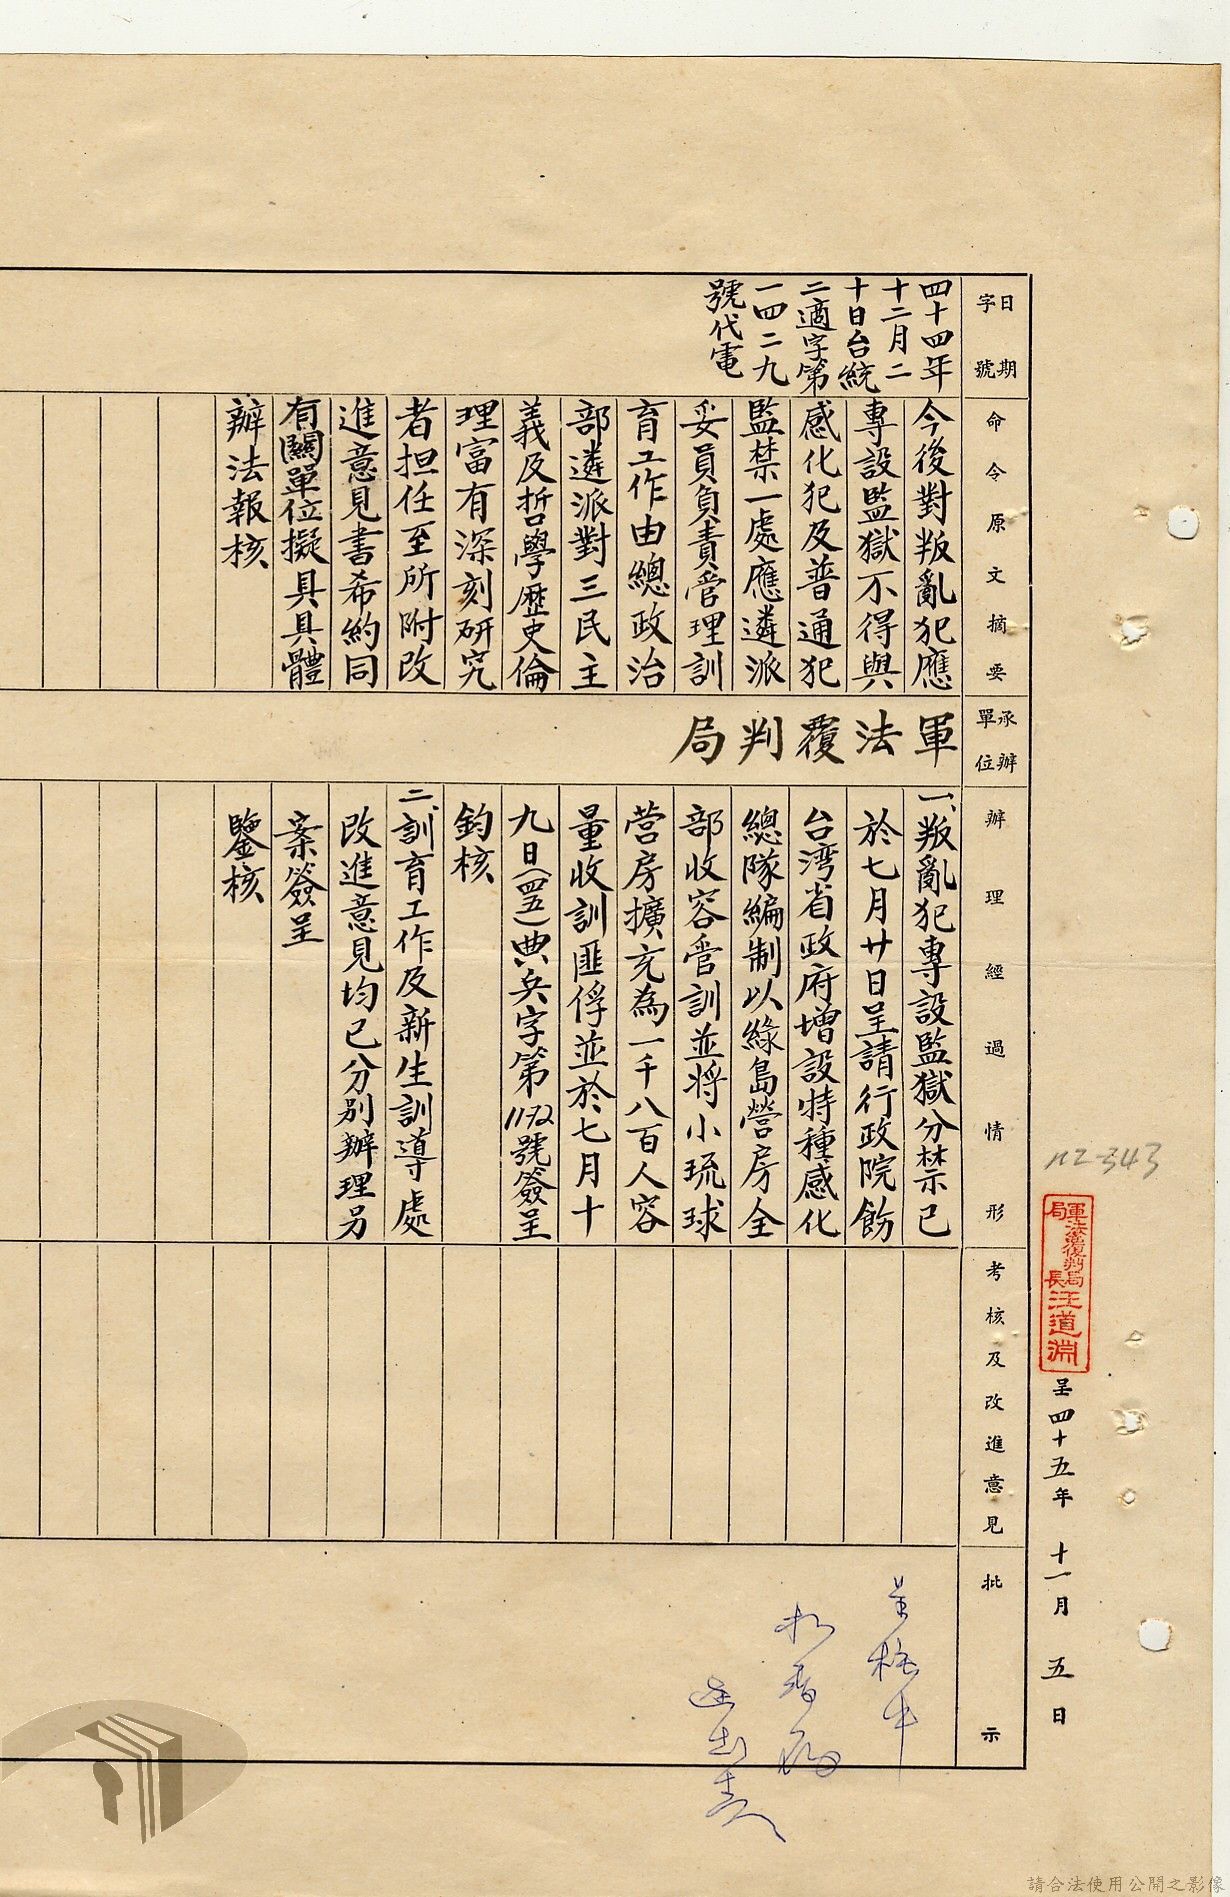 軍法覆判局局長汪道淵
呈四十五年十一月五日
日期字號
四十四年
十二月二
十日台統
二適字第
一四二九
號代電
命令原文摘要
今後對叛亂犯應
專設監獄不得與
感化犯及普通犯
監禁一處應遴派
妥員負責管理訓
育工作由總政治
部遴派對三民主
義及哲學歷史倫
理富有深刻研究
者担任至所附改
進意見書希約同
有關單位擬具具體
辦法報核
承辦單位
軍法覆判局
辦理經過情形
一、叛亂犯專設監獄分禁示已
於七月廿日呈請行政院飭
台湾省政府增設特種感化
總隊編制以綠島營房全
部收容管訓並将小琉球
营房擴充為一千八百人容
量收訓匪俘並於七月十
九日(四五)典兵字第1172號簽呈
鈞核
二、訓育工作及新生訓導處
改進意見均已分別辦理另
案簽呈
鑒核
考核及改進意見
批示
112-343
請合法使用公開之影像